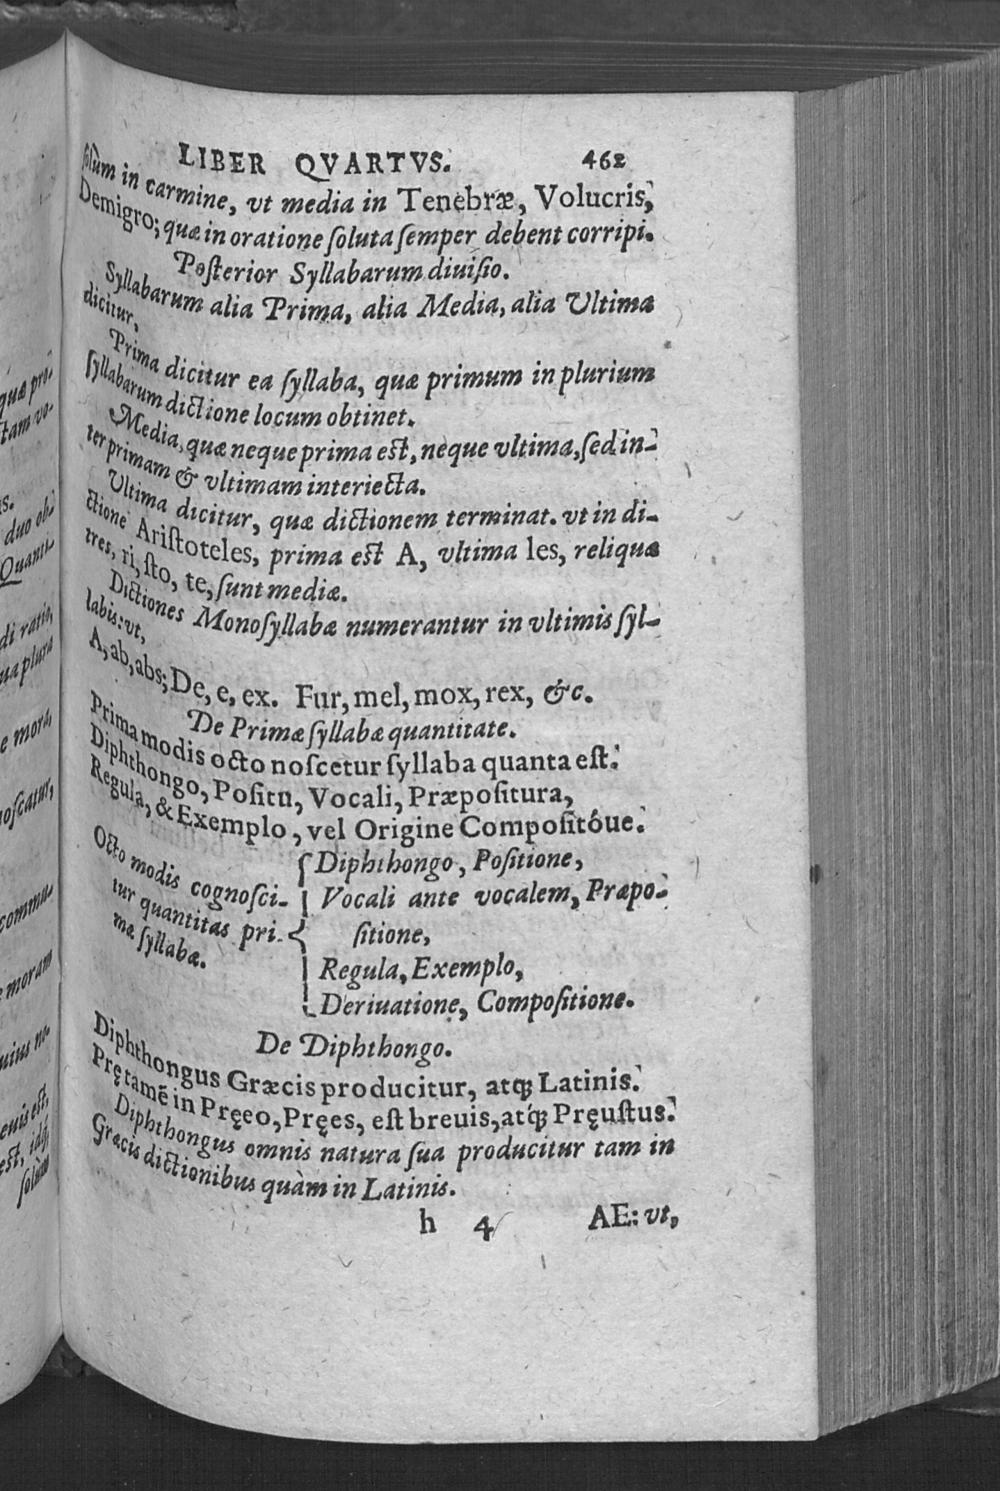 LIBER QVARTVS. 462
ſolùm in carmine, vt media in Tenebræ, Volucris,
Demigro; quæ in oratione ſoluta ſemper debent corripi.
Poſterior Syllabarum diuiſio.
Syllabarum alia Prima, alia Media, alia Vltima
dicitur,
Prima dicitur ea ſyllaba, quæ primum in plurium
ſyllabarum dictione locum obtinet.
Media, quæ neque prima eſt, neque vltima, ſed in-
ter primam & vltimam interiecta.
Vltima dicitur, quæ dictionem terminat. vt in di-
ctione Ariſtoteles, prima eſt A, vltima les, reliquæ
tres, ri, ſto, te, ſunt mediæ.
Dictiones Monoſyllabæ numerantur in vltimis ſyl-
labis: vt,
A, ab, abs; De, e, ex. Fur, mel, mox, rex, &c.
De Primæ ſyllabæ quantitate.
Prima modis octo noſcetur ſyllaba quanta eſt:
Diphthongo, Poſitu, Vocali, Præpoſitura,
Regula, & Exemplo, vel Origine Compoſitóue.
Octo modis cognoſci-
tur quantitas pri-
mæ ſyllabæ.
Diphthongo, Poſitione,
Vocali ante vocalem, Præpo-
ſitione,
Regula, Exemplo,
Deriuatione, Compoſitione.
De Diphthongo.
Diphthongus Græcis producitur, atq; Latinis.
Prętamē in Pręeo, Pręes, eſt breuis, atq́; Pręuſtus.
Diphthongus omnis natura ſua producitur tam in
Græcis dictionibus quàm in Latinis.
h 4 AE: vt,
quæ pro-
ſtam vo-
s.
duo ob-
Quanti-
di ratio,
na plura
e mora,
noſcatur,
commu-
e moram
uius no-
euis eſt,
eſt, idq́;
ſolùm